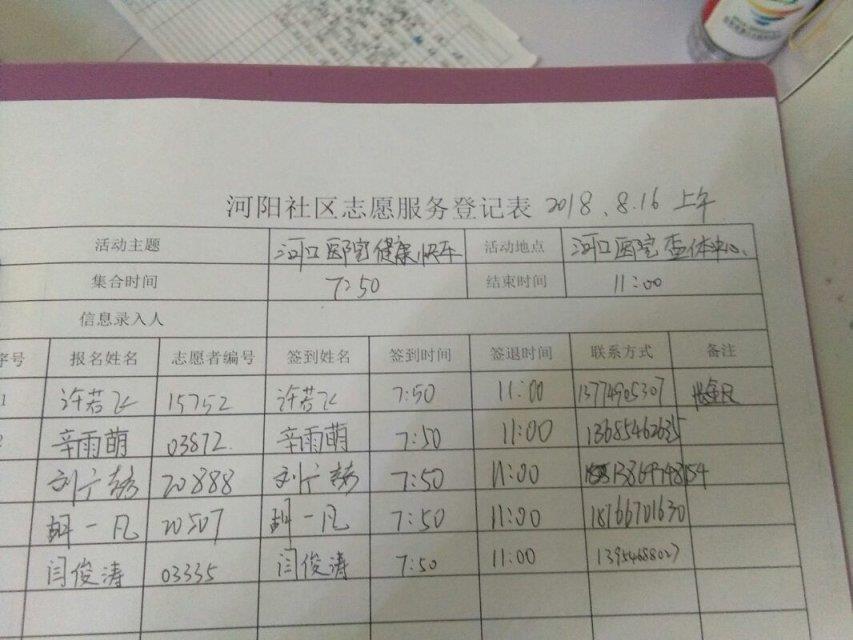 河阳社区志愿服务登记表 2018.8.16 上午
活动主题 河口医院健康快车 活动地点 河口医院查体中心
集合时间 7:50 结束时间 11:00
信息录入人
序号 报名姓名 志愿者编号 签到姓名 签到时间 签退时间 联系方式 备注
1 许若飞 15752 许若飞 7:50 11:00 13774905307
2 辛雨萌 03872 辛雨萌 7:50 11:00 13685462635
刘广 20888 刘广 7:50 11:00
胡一凡 20507 胡一凡 7:50 11:00 18766701630
闫俊涛 03335 闫俊涛 7:50 11:00 13954688027